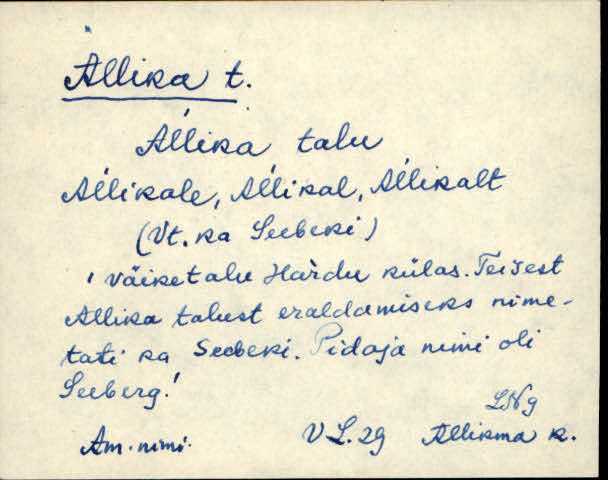 Allika t.
Àllika talu
Àllikale, Àllikal, Àllikalt
(Vt. ka Seebeki)
' Väiketalu Hardu külas. Teisest
Allika talust eraldamiseks nime-
tati ka Seebeki. Pidaja nimi oli
Seeberg.'
LNg
Am. nimi. V L. 29 Allikma k.